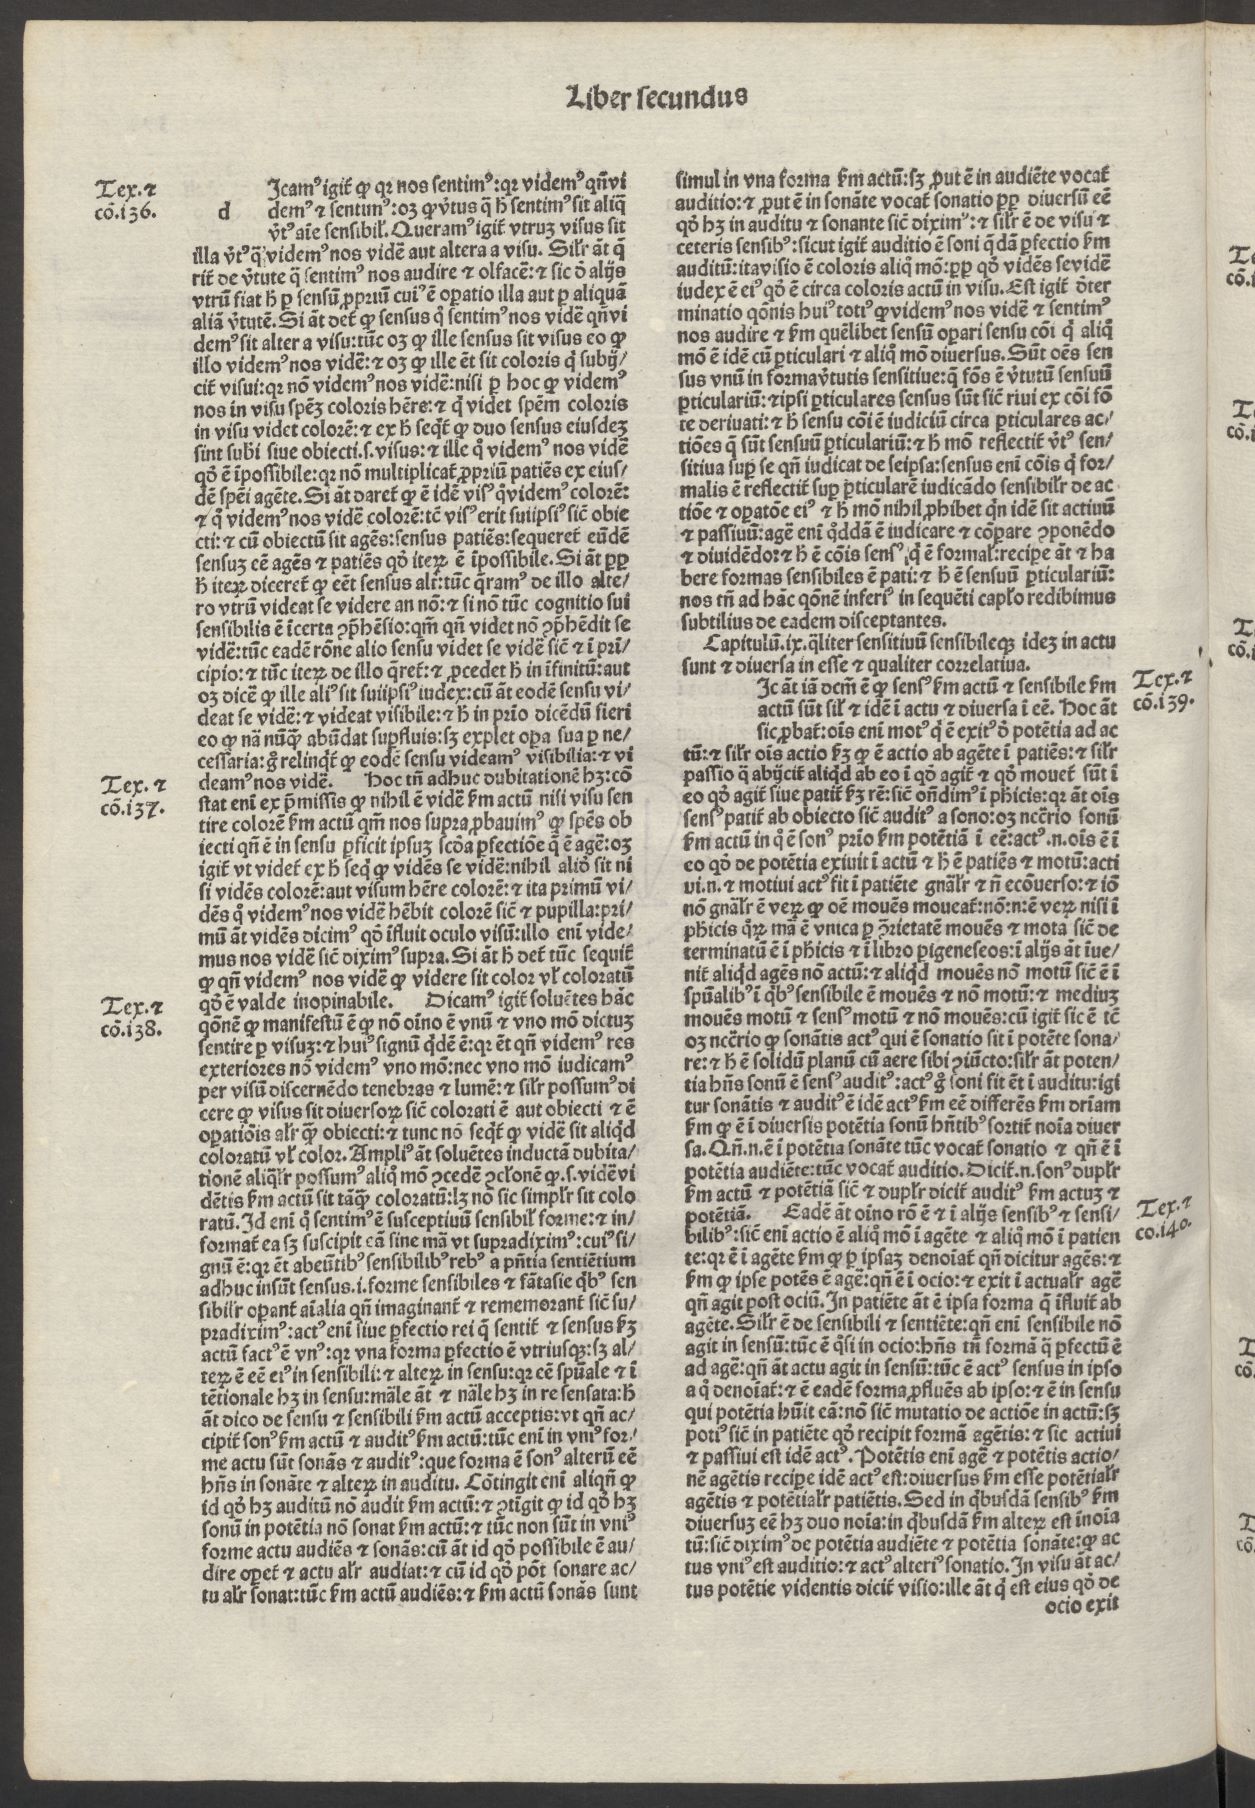 Liber secundus
Tex. ⁊
cõ.136.
d
Icamꝰ igit̃ ꝙ qꝛ nos sentimꝰ: qꝛ videmꝰ qñ vi
demꝰ ⁊ sentimꝰ: oꝫ ꝙ v̉tus q̃ h̃ sentimꝰ sit aliq̃
v̉tꝰ aĩe sensibił. Queramꝰ igit̃ vtruꝫ visus sit
illa v̉tꝰ q̃ videmꝰ nos vidẽ aut altera a visu. Silr̃ ãt q̃
rit̃ de v̉tute q̃ sentimꝰ nos audire ⁊ olfacẽ: ⁊ sic ď alijs
vtrũ fiat h̃ ꝑ sensũ ꝓpriũ cuiꝰ ẽ oꝑatio illa aut ꝑ aliquã
aliã v̉tutẽ. Si ãt det̃ ꝙ sensus q̊ sentimꝰ nos vidẽ qñ vi
demꝰ sit alter a visu: tũc oꝫ ꝙ ille sensus sit visus eo ꝙ
illo videmꝰ nos vidẽ: ⁊ oꝫ ꝙ ille ẽt sit coloris q̊ subij/
cit̃ visui: qꝛ nõ videmꝰ nos vidẽ: nisi ꝑ hoc ꝙ videmꝰ
nos in visu spẽꝫ coloris hẽre: ⁊ q̊ videt spẽm coloris
in visu videt colorẽ: ⁊ ex h̃ seq̃t̃ ꝙ duo sensus eiusdeꝫ
sint subi̇ siue obiecti .s. visus: ⁊ ille q̊ videmꝰ nos vidẽ
qď ẽ ĩpossibile: qꝛ nõ multiplicat̃ ꝓpriũ patiẽs ex eius/
dẽ spẽi agẽte. Si ãt daret̃ ꝙ ẽ idẽ visꝰ q̊ videmꝰ colorẽ:
⁊ q̊ videmꝰ nos vidẽ colorẽ: tc̃ visꝰ erit suiipsiꝰ sic̃ obie
cti: ⁊ cũ obiectũ sit agẽs: sensus patiẽs: sequeret̃ eũdẽ
sensuꝫ cẽ agẽs ⁊ patiẽs qď iteꝝ ẽ ĩpossibile. Si ãt ꝓꝑ
h̃ iteꝝ diceret̃ ꝙ eẽt sensus alť: tũc q̃ramꝰ de illo alte/
ro vtrũ videat se videre an nõ: ⁊ si nõ tũc cognitio sui
sensibilis ẽ ĩcerta ꝯp̃hẽsio: qm̃ qñ videt nõ ꝯp̃hẽdit se
vidẽ: tũc eadẽ rõne alio sensu videt se vidẽ sic̃ ⁊ ĩ prĩ/
cipio: ⁊ tũc iteꝝ de illo q̃ret̃: ⁊ ꝓcedet h̃ in ĩfinitũ: aut
oꝫ dicẽ ꝙ ille aliꝰ sit suiipsiꝰ iudex: cũ ãt eodẽ sensu vi/
deat se vidẽ: ⁊ videat visibile: ⁊ h̃ in prĩo dicẽdũ fieri
eo ꝙ nã nũq̃ abũdat suꝑfluis: sꝫ explet oꝑa sua ꝑ ne/
cessaria: g̊ relinq̃t̃ ꝙ eodẽ sensu videamꝰ visibilia: ⁊ vi
Tex. ⁊
cõ.137.
deamꝰ nos vidẽ. Hoc tñ adhuc dubitationẽ hꝫ: cõ
stat eni̇ ex p̃missis ꝙ nihil ẽ vidẽ ẜm actũ nisi visu sen
tire colorẽ ẜm actũ qm̃ nos supra ꝓbauimꝰ ꝙ spẽs ob
iecti qñ ẽ in sensu ꝑficit ipsuꝫ scďa ꝑfectiõe q̃ ẽ agẽ: oꝫ
igit̃ vt videt̃ ex h̃ seq̃ ꝙ vidẽs se vidẽ: nihil aliď sit ni
si vidẽs colorẽ: aut visum hẽre colorẽ: ⁊ ita primũ vi/
dẽs q̊ videmꝰ nos vidẽ hẽbit colorẽ sic̃ ⁊ pupilla: pri/
mũ ãt vidẽs dicimꝰ qď ĩfluit oculo visũ: illo eni̇ vide/
mus nos vidẽ sic̃ diximꝰ supra. Si ãt h̃ det̃ tũc sequit̃
ꝙ qñ videmꝰ nos vidẽ ꝙ videre sit color vł coloratũ
Tex. ⁊
cõ.138.
qď ẽ valde inopinabile. Dicamꝰ igit̃ soluẽtes hãc
q̃onẽ ꝙ manifestũ ẽ ꝙ nõ oĩno ẽ vnũ ⁊ vno mõ dictuꝫ
sentire ꝑ visuꝫ: ⁊ huiꝰ signũ q̊dẽ ẽ: qꝛ ẽt qñ videmꝰ res
exteriores nõ videmꝰ vno mõ: nec vno mõ iudicamꝰ
per visũ discernẽdo tenebras ⁊ lumẽ: ⁊ silr̃ possumꝰ di
cere ꝙ visus sit diuersoꝝ sic̃ colorati ẽ aut obiecti ⁊ ẽ
oꝑatiõis alr̃ q̃ obiecti: ⁊ tunc nõ seq̃t̃ ꝙ vidẽ sit aliq̊d
coloratũ vł color. Ampliꝰ ãt soluẽtes inductã dubita/
tionẽ aliq̊lr̃ possumꝰ aliq̊ mõ ꝯcedẽ ꝯclonẽ ꝙ .s. vidẽ vi
dẽtis ẜm actũ sit tãq̃ coloratũ: lꝫ nõ sic simplr̃ sit colo
ratũ. Id eni̇ q̊ sentimꝰ ẽ susceptiuũ sensibił forme: ⁊ in/
format̃ ea sꝫ suscipit eã sine mã vt supra diximꝰ: cuiꝰ si/
gnũ ẽ: qꝛ ẽt abeũtibꝰ sensibilibꝰ rebꝰ a pñtia sentiẽtium
adhuc insũt sensus .i. forme sensibiles ⁊ fãtasie q̊bꝰ sen
sibilr̃ oꝑant̃ aĩalia qñ imaginant̃ ⁊ rememorant̃ sic̃ su/
pra diximꝰ: actꝰ eni̇ siue ꝑfectio rei q̃ sentit̃ ⁊ sensus ẜꝫ
actũ factꝰ ẽ vnꝰ: qꝛ vna forma ꝑfectio ẽ vtriusqꝫ: sꝫ al/
teꝝ ẽ eẽ eiꝰ in sensibili: ⁊ alteꝝ in sensu: qꝛ eẽ spũale ⁊ ĩ
tẽtionale hꝫ in sensu: mãle ãt ⁊ nãle hꝫ in re sensata: h̃
ãt dico de sensu ⁊ sensibili ẜm actũ acceptis: vt qñ ac/
cipit̃ sonꝰ ẜm actũ ⁊ auditꝰ ẜm actũ: tũc eni̇ in vniꝰ for/
me actu sũt sonãs ⁊ auditꝰ: que forma ẽ sonꝰ alterũ eẽ
hñs in sonãte ⁊ alteꝝ in auditu. Cõtingit eni̇ aliqñ ꝙ
id qď hꝫ auditũ nõ audit ẜm actũ: ⁊ ꝯtĩgit ꝙ id qď hꝫ
sonũ in potẽtia nõ sonat ẜm actũ: ⁊ tũc non sũt in vniꝰ
forme actu audiẽs ⁊ sonãs: cũ ãt id qď possibile ẽ au/
dire oꝑet̃ ⁊ actu alr̃ audiat: ⁊ cũ id qď põt sonare ac/
tu alr̃ sonat: tũc ẜm actũ audiẽs: ⁊ ẜm actũ sonãs sunt
simul in vna forma ẜm actũ: sꝫ ꝓut ẽ in audiẽte vocat̃
auditio: ⁊ ꝓut ẽ in sonãte vocat̃ sonatio ꝓꝑ diuersũ eẽ
qď hꝫ in auditu ⁊ sonante sic̃ diximꝰ: ⁊ silr̃ ẽ de visu ⁊
ceteris sensibꝰ: sicut igit̃ auditio ẽ soni q̃dã ꝑfectio ẜm
auditũ: ita visio ẽ coloris aliq̊ mõ: ꝓꝑ qď vidẽs se vidẽ
iudex ẽ eiꝰ qď ẽ circa coloris actũ in visu. Est igit̃ ďter
minatio q̃onis huiꝰ totiꝰ ꝙ videmꝰ nos vidẽ ⁊ sentimꝰ
nos audire ⁊ ẜm quẽlibet sensũ oꝑari sensu cõi q̊ aliq̊
mõ ẽ idẽ cũ ꝑticulari ⁊ aliq̊ mõ diuersus. Sũt oẽs sen
sus vnũ in forma v̉tutis sensitiue: q̃ fõs ẽ v̉tutũ sensuũ
ꝑticulariũ: ⁊ ipsi ꝑticulares sensus sũt sic̃ riui ex cõi fõ
te deriuati: ⁊ h̃ sensu cõi ẽ iudiciũ circa ꝑticulares ac/
tiões q̃ sũt sensuũ ꝑticulariũ: ⁊ h̃ mõ reflectit̃ v̉tꝰ sen/
sitiua suꝑ se qñ iudicat de seipsa: sensus eni̇ cõis q̊ for/
malis ẽ reflectit̃ suꝑ ꝑticularẽ iudicãdo sensibilr̃ de ac
tiõe ⁊ oꝑatõe eiꝰ ⁊ h̃ mõ nihil ꝓhibet q̃n idẽ sit actiuũ
⁊ passiuũ: agẽ eni̇ q̊ddã ẽ iudicare ⁊ cõꝑare ꝯponẽdo
⁊ diuidẽdo: ⁊ h̃ ẽ cõis sensꝰ q̊ ẽ formał: reciꝑe ãt ⁊ ha
bere formas sensibiles ẽ pati: ⁊ h̃ ẽ sensuũ ꝑticulariũ:
nos tñ ad hãc q̃onẽ inferiꝰ in sequẽti cap̃lo redibimus
subtilius de eadem disceptantes.
Capitulũ .ix. q̃liter sensitiuũ sensibileqꝫ ideꝫ in actu
sunt ⁊ diuersa in esse ⁊ qualiter correlatiua.
Tex. ⁊
cõ.139.
Ic ãt iã dc̃m ẽ ꝙ sensꝰ ẜm actũ ⁊ sensibile ẜm
actũ sũt sił ⁊ idẽ ĩ actu ⁊ diuersa ĩ eẽ. Hoc ãt
sic ꝓbat̃: oĩs eni̇ motꝰ q̊ ẽ exitꝰ ď potẽtia ad ac
tũ: ⁊ silr̃ oĩs actio ẜꝫ ꝙ ẽ actio ab agẽte ĩ patiẽs: ⁊ silr̃
passio q̃ abijcit̃ aliq̊d ab eo ĩ qď agit̃ ⁊ qď mouet̃ sũt ĩ
eo qď agit̃ siue patit̃ ẜꝫ rẽ: sic̃ oñdimꝰ ĩ phicis: qꝛ ãt oĩs
sensꝰ patit̃ ab obiecto sic̃ auditꝰ a sono: oꝫ ncc̃rio sonũ
ẜm actum in q̊ ẽ sonꝰ prĩo ẜm potẽtiã ĩ eẽ: actꝰ .n. oĩs ẽ ĩ
eo qď de potẽtia exiuit ĩ actũ ⁊ h̃ ẽ patiẽs ⁊ motũ: acti
ui .n. ⁊ motiui actꝰ fit ĩ patiẽte gnãlr̃ ⁊ ñ ecõuerso: ⁊ iõ
nõ gnãlr̃ ẽ veꝝ ꝙ oẽ mouẽs moueat̃: nõ: n: ẽ veꝝ nisi ĩ
phicis q̊ꝝ mã ẽ vnica ꝑ ꝯ̃rietatẽ mouẽs ⁊ mota sic̃ de
terminatũ ẽ ĩ phicis ⁊ ĩ libro ꝑigeneseos: ĩ alijs ãt ĩue/
nit̃ aliq̊d agẽs nõ actũ: ⁊ aliq̊d mouẽs nõ motũ sic̃ ẽ ĩ
spũalibꝰ ĩ q̊bꝰ sensibile ẽ mouẽs ⁊ nõ motũ: ⁊ mediuꝫ
mouẽs motũ ⁊ sensꝰ motũ ⁊ nõ mouẽs: cũ igit̃ sic ẽ tc̃
oꝫ ncc̃rio ꝙ sonãtis actꝰ qui ẽ sonatio sit ĩ potẽte sona/
re: ⁊ h̃ ẽ solidũ planũ cũ aere sibi ꝯiũcto: silr̃ ãt poten/
tia hñs sonũ ẽ sensꝰ auditꝰ: actꝰ g̊ soni fit ẽt ĩ auditu: igi
tur sonãtis ⁊ auditꝰ ẽ idẽ actꝰ ẜm eẽ differẽs ẜm dr̃iam
ẜm ꝙ ẽ ĩ diuersis potẽtia sonũ hñtibꝰ sortit̃ noĩa diuer
sa. Qñ .n. ẽ ĩ potẽtia sonãte tũc vocat̃ sonatio ⁊ qñ ẽ ĩ
potẽtia audiẽte: tũc vocat̃ auditio. Dicit̃ .n. sonꝰ duplr̃
ẜm actũ ⁊ potẽtiã sic̃ ⁊ duplr̃ dicit̃ auditꝰ ẜm actuꝫ ⁊
Tex. ⁊
co.140.
potẽtiã. Eadẽ ãt oĩno rõ ẽ ⁊ ĩ alijs sensibꝰ ⁊ sensi/
bilibꝰ: sic̃ eni̇ actio ẽ aliq̊ mõ ĩ agẽte ⁊ aliq̊ mõ ĩ patien
te: qꝛ ẽ ĩ agẽte ẜm ꝙ ꝑ ipsaꝫ denoĩat̃ qñ dicitur agẽs: ⁊
ẜm ꝙ ipse potẽs ẽ agẽ: qñ ẽ ĩ ocio: ⁊ exit ĩ actualr̃ agẽ
qñ agit post ociũ. In patiẽte ãt ẽ ipsa forma q̃ ĩfluit̃ ab
agẽte. Silr̃ ẽ de sensibili ⁊ sentiẽte: qñ eni̇ sensibile nõ
agit in sensũ: tũc ẽ q̊si in ocio: hñs tñ formã q̃ ꝑfectũ ẽ
ad agẽ: qñ ãt actu agit in sensũ: tũc ẽ actꝰ sensus in ipso
a q̊ denoĩat̃: ⁊ ẽ eadẽ forma ꝓfluẽs ab ipso: ⁊ ẽ in sensu
qui potẽtia hũit eã: nõ sic̃ mutatio de actiõe in actũ: sꝫ
potiꝰ sic̃ in patiẽte qď recipit formã agẽtis: ⁊ sic actiui
⁊ passiui est idẽ actꝰ. Potẽtis eni̇ agẽ ⁊ potẽtis actio/
nẽ agẽtis reciꝑe idẽ actꝰ est: diuersus ẜm esse potẽtialr̃
agẽtis ⁊ potẽtialr̃ patiẽtis. Sed in q̊busdã sensibꝰ ẜm
diuersuꝫ eẽ hꝫ duo noĩa: in q̊busdã ẜm alteꝝ est ĩnoĩa
tũ: sic̃ diximꝰ de potẽtia audiẽte ⁊ potẽtia sonãte: ꝙ ac
tus vniꝰ est auditio: ⁊ actꝰ alteriꝰ sonatio. In visu ãt ac/
tus potẽtie videntis dicit̃ visio: ille ãt q̊ est eius qď de
ocio exit